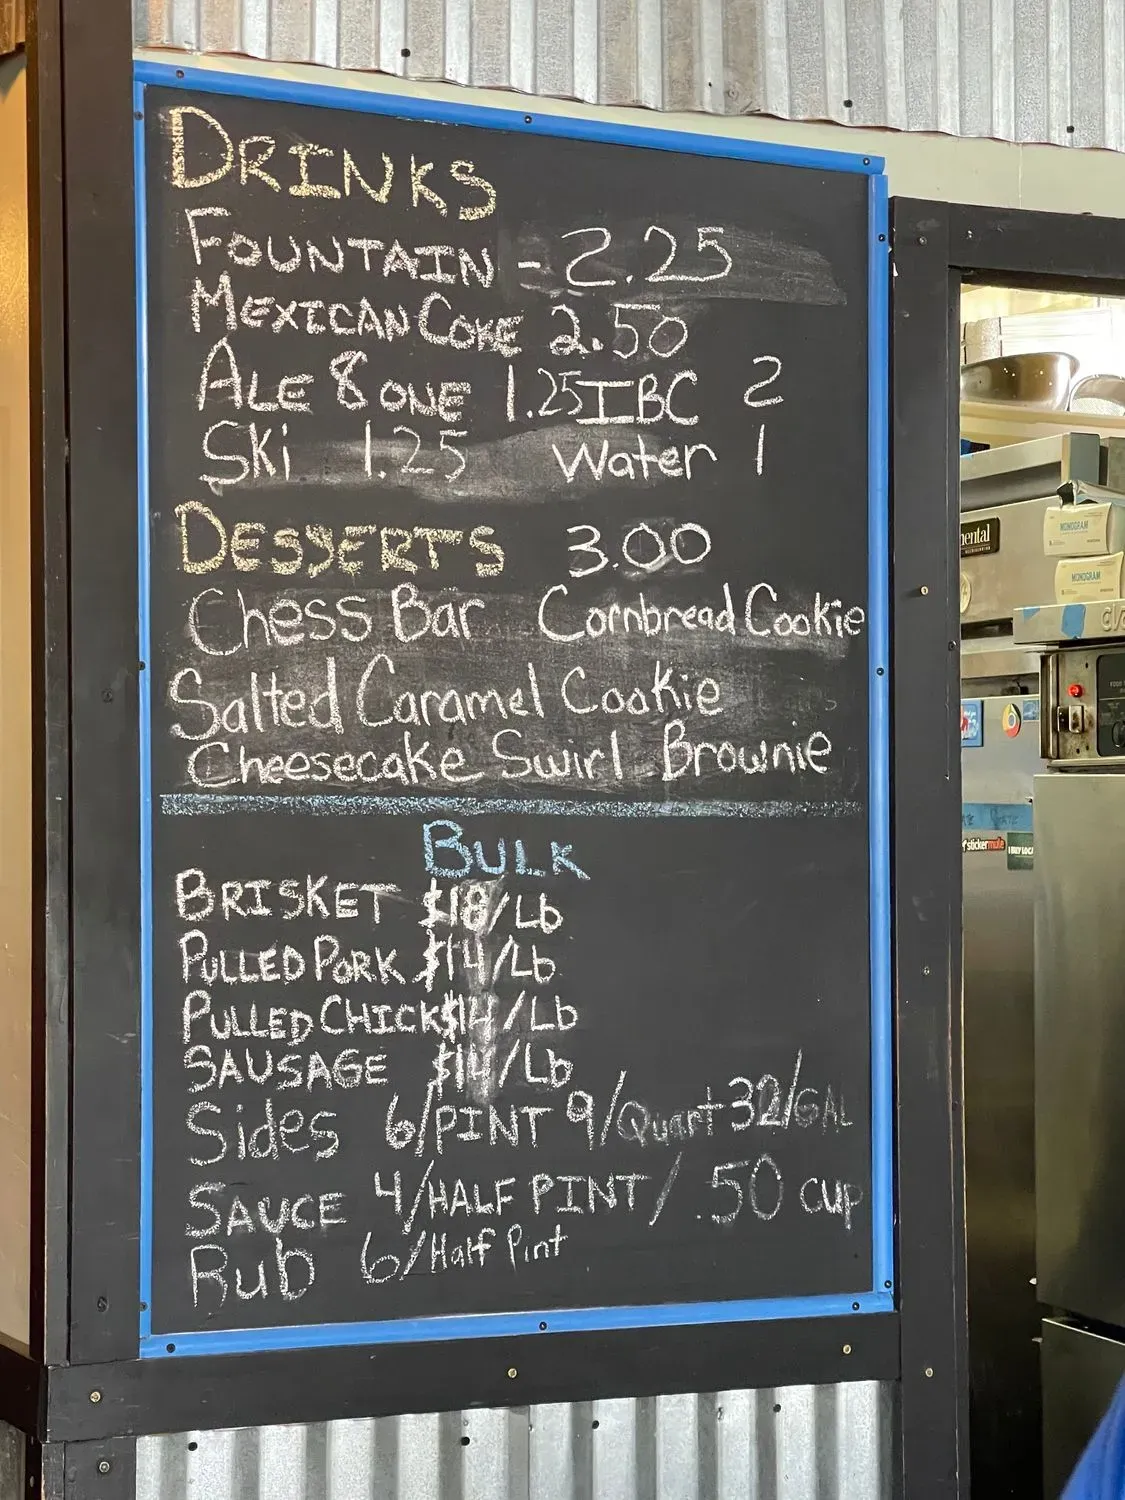 DRINKS
FOUNTAIN - 2.25
MEXICAN COKE 2.50
ALE 8 ONE 1.25 IBC 2
SKi 1.25 Water 1
DESSERTS 3.00
Chess Bar Cornbread Cookie
Salted Caramel Cookie
Cheesecake Swirl Brownie
BULK
BRISKET $18/Lb
PULLED PORK $14/Lb
PULLED CHICK $14/Lb
SAUSAGE $14/Lb
Sides 6/PINT 9/Quart 32/GAL
SAUCE 4/HALF PINT / .50 CUP
Rub 6/Half Pint
mental
MONOGRAM
MONOGRAM
stickermule
I BUY LOCAL